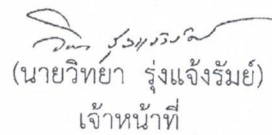 (นายวิทยา รุ่งแจ้งรัมย์)
เจ้าหน้าที่